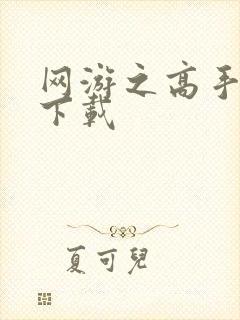 网游之高手
下载
夏可兒